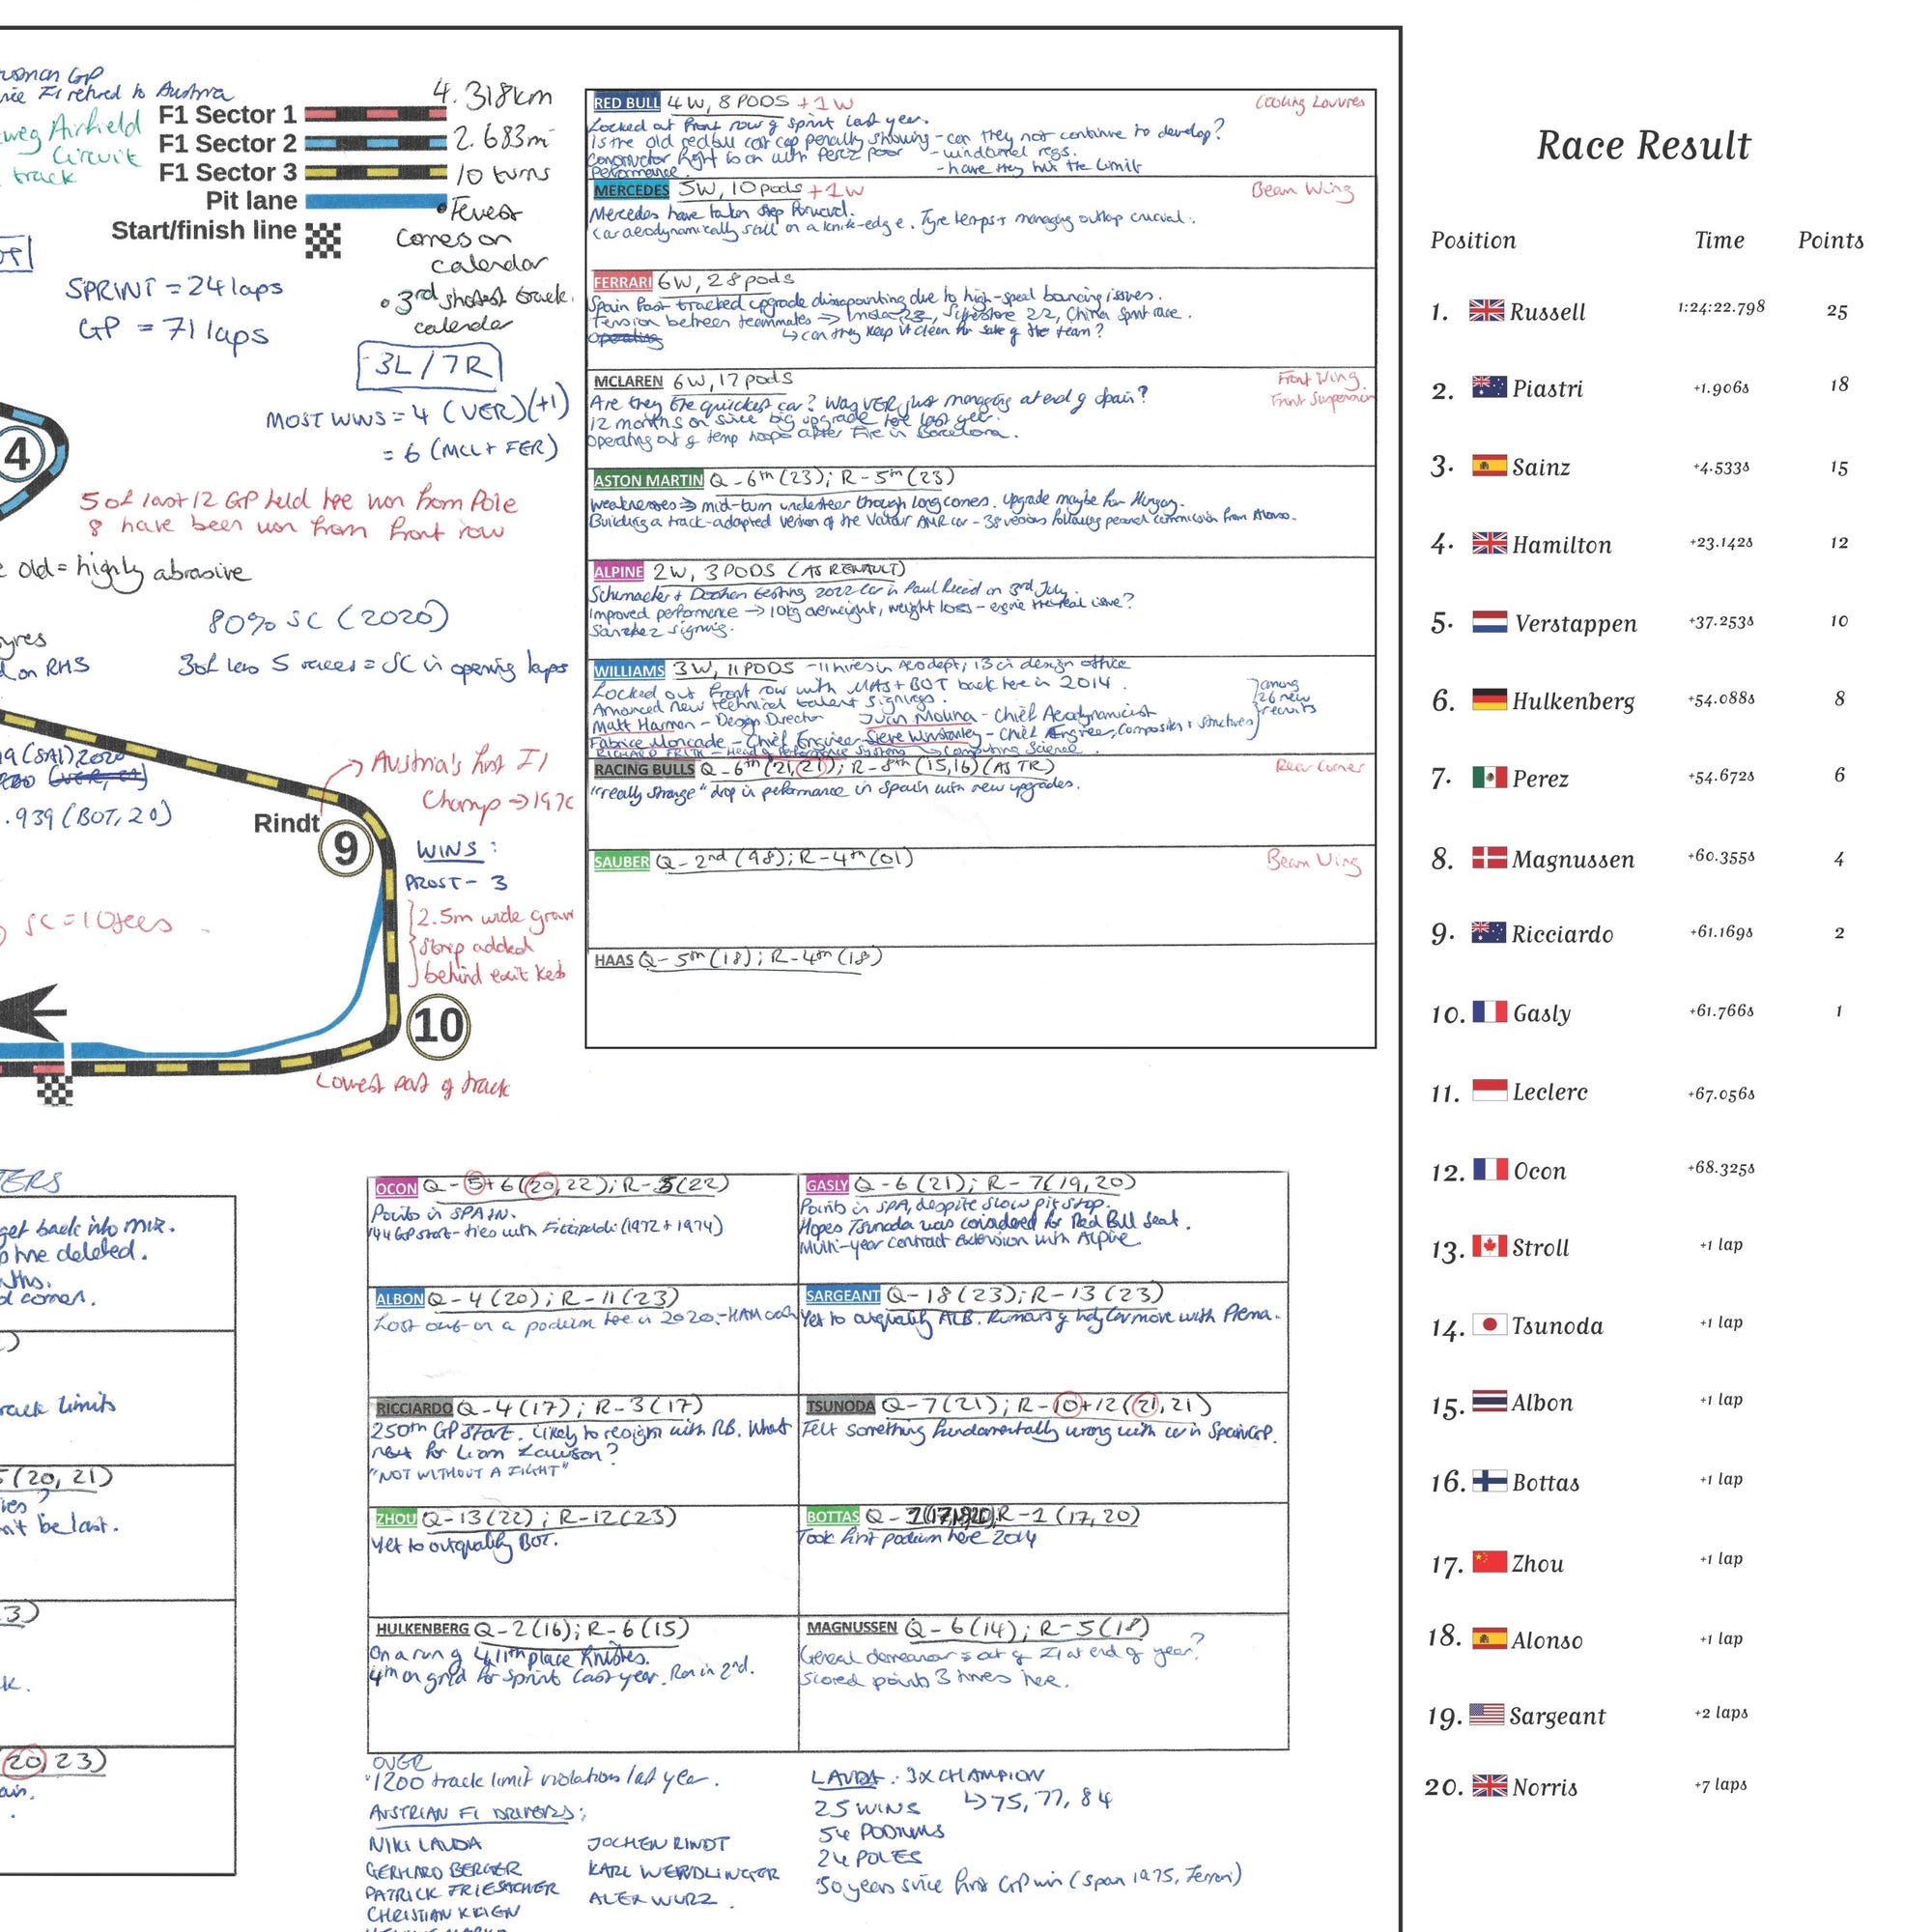 F1 Sector 1
F1 Sector 2
F1 Sector 3
Pit lane
Start/finish line
4.318km
2.683mi
10 turns
Fewest
Comes on
calendar
3rd shortest track
calendar
weg Airfield
Circuit
track
SPRINT = 24 laps
GP = 71 laps
3L / 7R
MOST WINS = 4 (VER)(+1)
= 6 (MCL + FER)
4
5 of last 12 GP held here won from Pole
8 have been won from front row
old = highly abrasive
80% SC (2020)
yres
on RHS
3 of last 5 races = SC in opening laps
(SAI) 2020
.939 (BOT, 20)
Austria's first F1
Champ → 197
Rindt
9
WINS:
PROST - 3
2.5m wide grav
strip added
behind exit kerb
10
Lowest part of track
RED BULL 4W, 8 PODS +1W
Cooling Louvres
Locked out front row of sprint last year.
Is the old redbull cost cap penalty showing - can they not continue to develop?
Constructor fight is on with Perez poor - windtunnel regs.
Performance. - have they hit the limit
MERCEDES 5W, 10 pods +1W
Beam Wing
Mercedes have taken step forward.
Car aerodynamically still on a knife-edge. Tyre temps + managing outlap crucial.
FERRARI 6W, 28 pods
Spain fast tracked upgrade dissapointing due to high-speed bouncing issues.
Tension between teammates → 23, Silverstone 22, China Sprint race.
↳ can they keep it clean for sake of the team?
MCLAREN 6W, 17 pods
Front Wing.
Front Suspension
Are they the quickest car? Was VER just managing at end of Spain?
12 months on since big upgrade here last year.
Operating out of temp hosp after fire in Barcelona.
ASTON MARTIN Q - 6th (23); R - 5th (23)
Weaknesses → mid-turn understeer though long corners. Upgrade maybe for Hungary.
Building a track-adapted version of the Valour AMR car - 38 versions following personal commission from Alonso.
ALPINE 2W, 3 PODS (AS RENAULT)
Schumacher + Doohan testing 2022 car in Paul Ricard on 3rd July.
Improved performance → 10kg overweight, weight loss - engine thermal issue?
Sanchez signing.
WILLIAMS 3W, 11 PODS - 11 hires in Aero dept; 13 in design office
Locked out front row with MAS + BOT back here in 2014.
Announced new technical talent signings.
Matt Harman - Design Director Juan Molina - Chief Aerodynamicist
Fabrice Moncade - Chief Engineer Steve Winstanley - Chief Engineer, Composites + structures
RICHARD FRITH - Head of Performance Systems → Computing Science
among
26 new
recruits
RACING BULLS Q - 6th (21, 21); R - 8th (15, 16) (AS TR)
Rear Corner
"really strange" drop in performance in Spain with new upgrades.
SAUBER Q - 2nd (98); R - 4th (01)
Beam Wing
HAAS Q - 5th (18); R - 4th (18)
TERS
get back into mix.
me deleted.
nths.
d corner.
rack limits
(20, 21)
't be last.
20, 23)
OCON Q - 5+6 (20, 22); R - 5 (22)
Points in SPAIN.
144 GP start - ties with Fittipaldi (1972 + 1974)
GASLY Q - 6 (21); R - 7 (19, 20)
Points in SPA, despite slow pit stop.
Hopes Tsunoda was considered for Red Bull Seat.
Multi-year contract extension with Alpine.
ALBON Q - 4 (20); R - 11 (23)
Lost out on a podium here in 2020 - HAM
SARGEANT Q - 18 (23); R - 13 (23)
Yet to outqualify ALB. Rumours of Indycar move with Prema.
RICCIARDO Q - 4 (17); R - 3 (17)
250th GP start. Likely to resign with RB. What
next for Liam Lawson?
"NOT WITHOUT A FIGHT"
TSUNODA Q - 7 (21); R - 10+12 (21, 21)
Felt something fundamentally wrong with car in Spain GP.
ZHOU Q - 13 (22); R - 12 (23)
Yet to outqualify BOT.
BOTTAS Q - R - 1 (17, 20)
Took first podium here 2014
HULKENBERG Q - 2 (16); R - 6 (15)
On a run of 4 11th place finishes.
4th on grid for sprint last year. Ran in 2nd.
MAGNUSSEN Q - 6 (14); R - 5 (18)
General demeanour = out of F1 at end of year?
Scored points 3 times here.
OVER
1200 track limit violations last year.
AUSTRIAN F1 DRIVERS:
NIKI LAUDA
GERHARD BERGER
PATRICK FRIESACHER
CHRISTIAN KLIEN
JOCHEN RINDT
KARL WENDLINGER
ALEX WURZ
LAUDA: 3X CHAMPION
↳ 75, 77, 84
25 WINS
54 PODIUMS
24 POLES
50 years since first GP win (Spain 1975, Ferrari)
Race Result
Position Time Points
1. Russell 1:24:22.798 25
2. Piastri +1.906s 18
3. Sainz +4.533s 15
4. Hamilton +23.142s 12
5. Verstappen +37.253s 10
6. Hulkenberg +54.088s 8
7. Perez +54.672s 6
8. Magnussen +60.355s 4
9. Ricciardo +61.169s 2
10. Gasly +61.766s 1
11. Leclerc +67.056s
12. Ocon +68.325s
13. Stroll +1 lap
14. Tsunoda +1 lap
15. Albon +1 lap
16. Bottas +1 lap
17. Zhou +1 lap
18. Alonso +1 lap
19. Sargeant +2 laps
20. Norris +7 laps